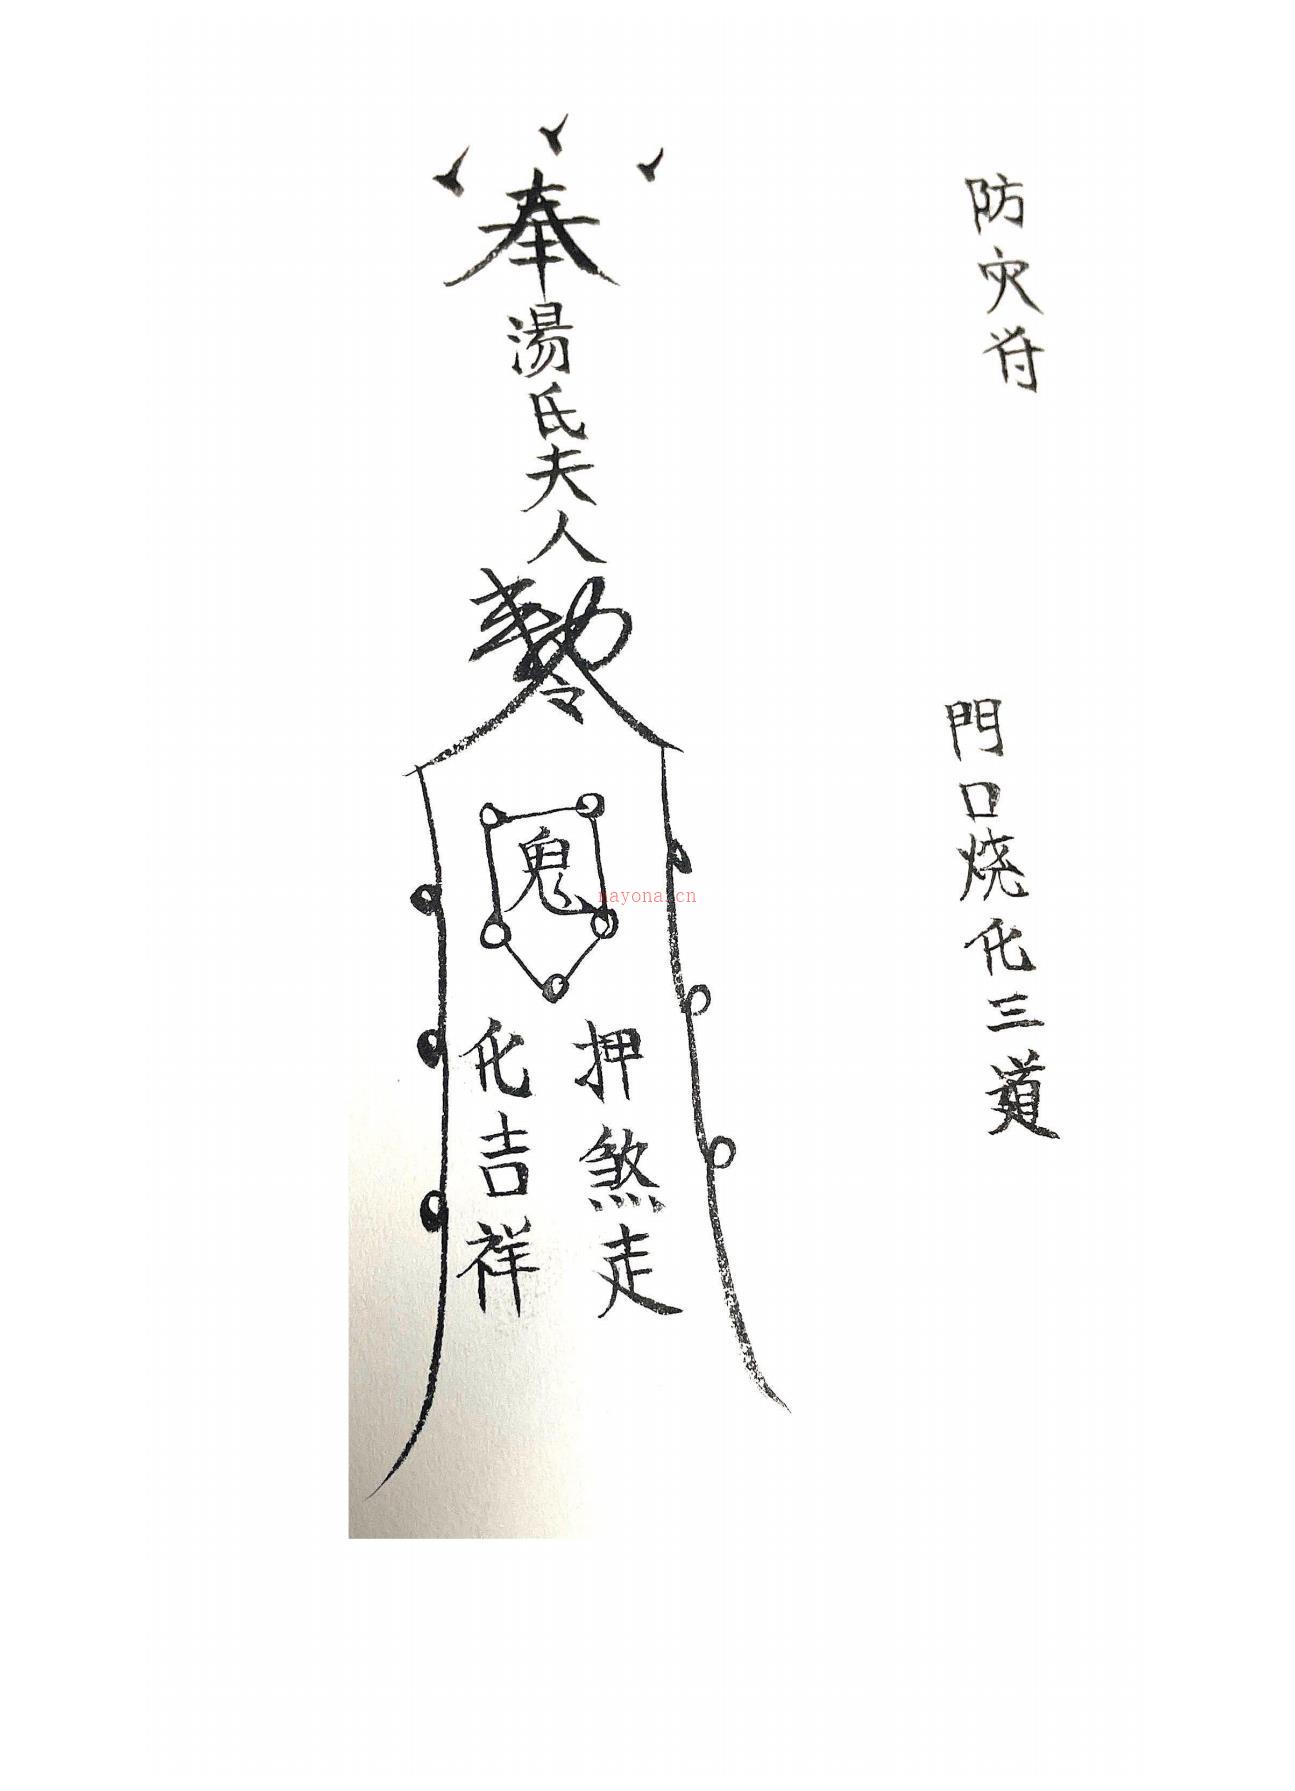 防灾符
門口烧化三道
奉
湯氏夫人
勅令
鬼
押煞走
化吉祥
nayona.cn